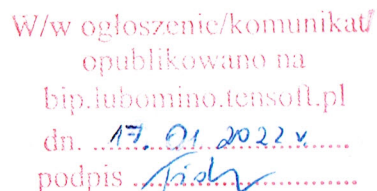 W/w ogłoszenie/komunikat/
opublikowano na
bip.lubomino.tensoft.pl
dn. 17. 01. 2022 r.
podpis